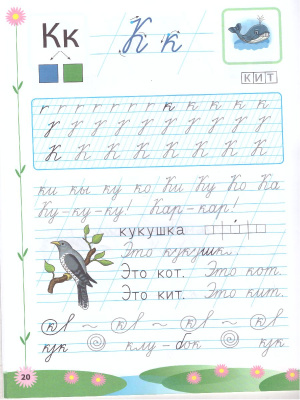 Кк К к
КИТ
г г г г г г г к к к к к
К К К К К К К К
ки кы ку ко Ки Ку Ко Ка
Ку-ку-ку! Кар-кар!
кукушка
Это кукушка.
Это кот. Это кот.
Это кит. Это кит.
кук клу-бок кук
20